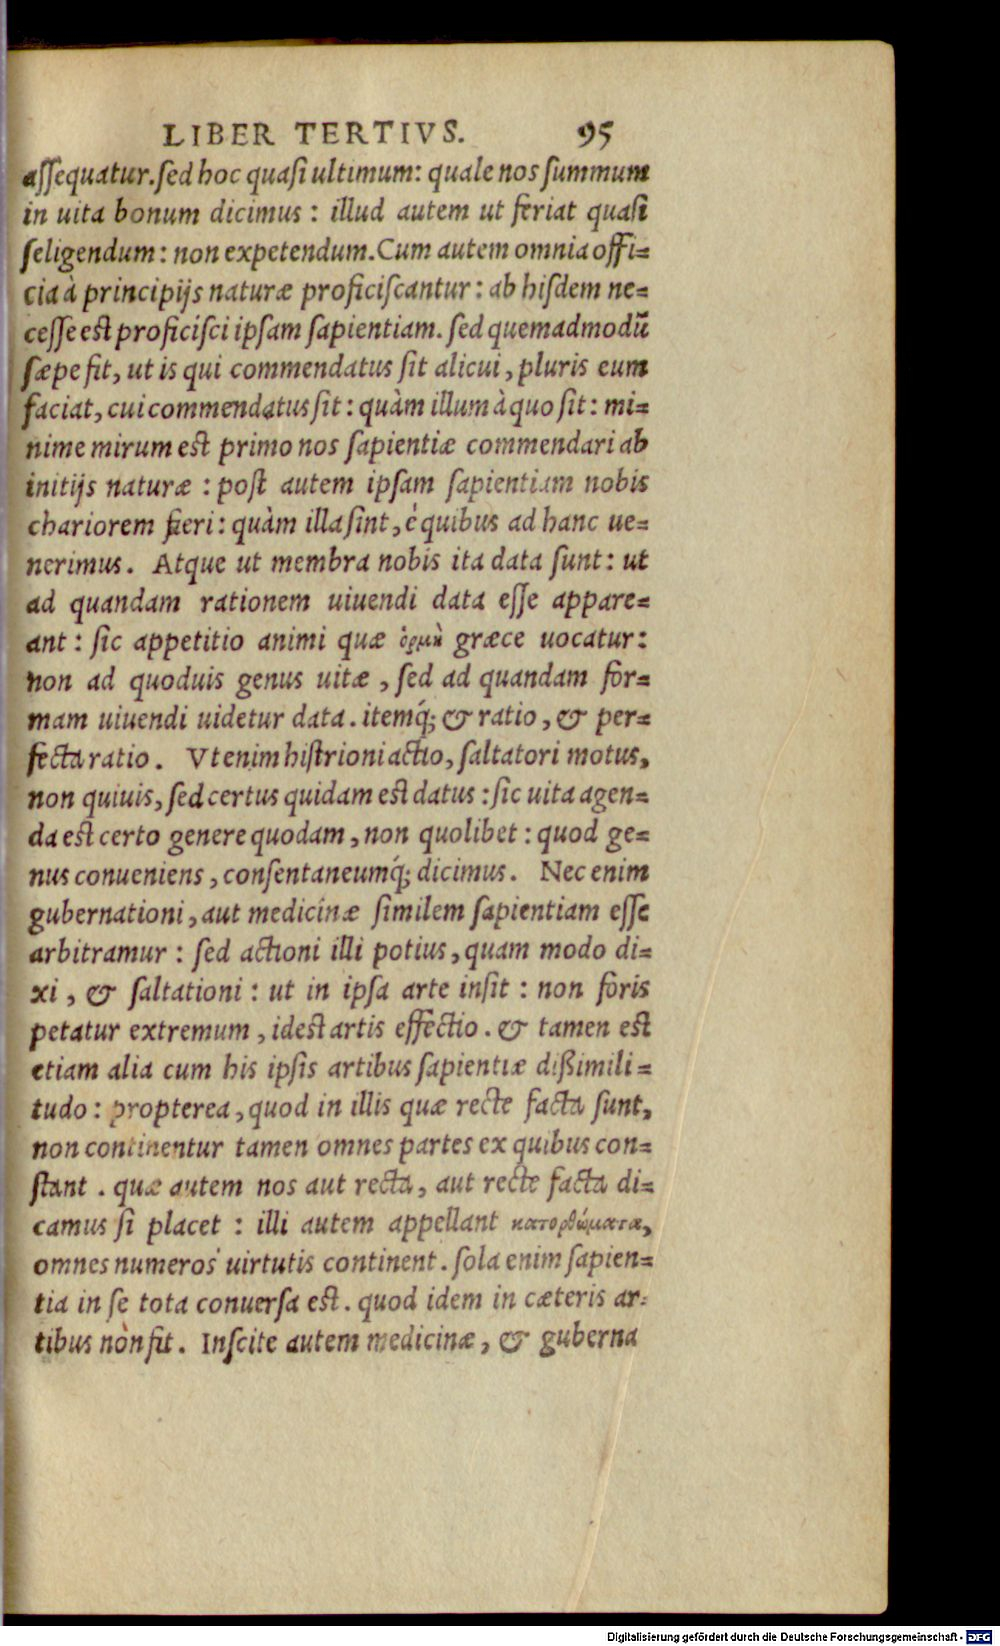 LIBER TERTIVS. 95
aſſequatur.ſed hoc quaſi ultimum: quale nos ſummum
in uita bonum dicimus : illud autem ut feriat quaſi
ſeligendum: non expetendum.Cum autem omnia offi=
cia à principijs naturæ proficiſcantur: ab hiſdem ne=
ceſſe est proficiſci ipſam ſapientiam. ſed quemadmodū
ſæpe fit, ut is qui commendatus ſit alicui, pluris eum
faciat, cui commendatus ſit: quàm illum à quo ſit: mi=
nime mirum est primo nos ſapientiæ commendari ab
initijs naturæ : poſt autem ipſam ſapientiam nobis
chariorem fieri: quàm illa ſint, é quibus ad hanc ue=
nerimus. Atque ut membra nobis ita data ſunt: ut
ad quandam rationem uiuendi data eſſe appare=
ant: ſic appetitio animi quæ ὁρμὴ græce uocatur:
non ad quoduis genus uitæ, ſed ad quandam for=
mam uiuendi uidetur data. itemq́; & ratio, & per=
fecta ratio. Vt enim hiſtrioni actio, ſaltatori motus,
non quiuis, ſed certus quidam est datus: ſic uita agen=
da est certo genere quodam, non quolibet: quod ge=
nus conueniens, conſentaneumq́; dicimus. Nec enim
gubernationi, aut medicinæ ſimilem ſapientiam eſſe
arbitramur: ſed actioni illi potius, quam modo di=
xi, & ſaltationi: ut in ipſa arte inſit: non foris
petatur extremum, idest artis effectio. & tamen est
etiam alia cum his ipſis artibus ſapientiæ dißimili=
tudo: propterea, quod in illis quæ recte facta ſunt,
non continentur tamen omnes partes ex quibus con=
ſtant. quæ autem nos aut recta, aut recte facta di=
camus ſi placet : illi autem appellant κατορθώματα,
omnes numeros uirtutis continent. ſola enim ſapien=
tia in ſe tota conuerſa est. quod idem in cæteris ar=
tibus nòn fit. Inſcite autem medicinæ, & guberna
Digitalisierung gefördert durch die Deutsche Forschungsgemeinschaft - DFG